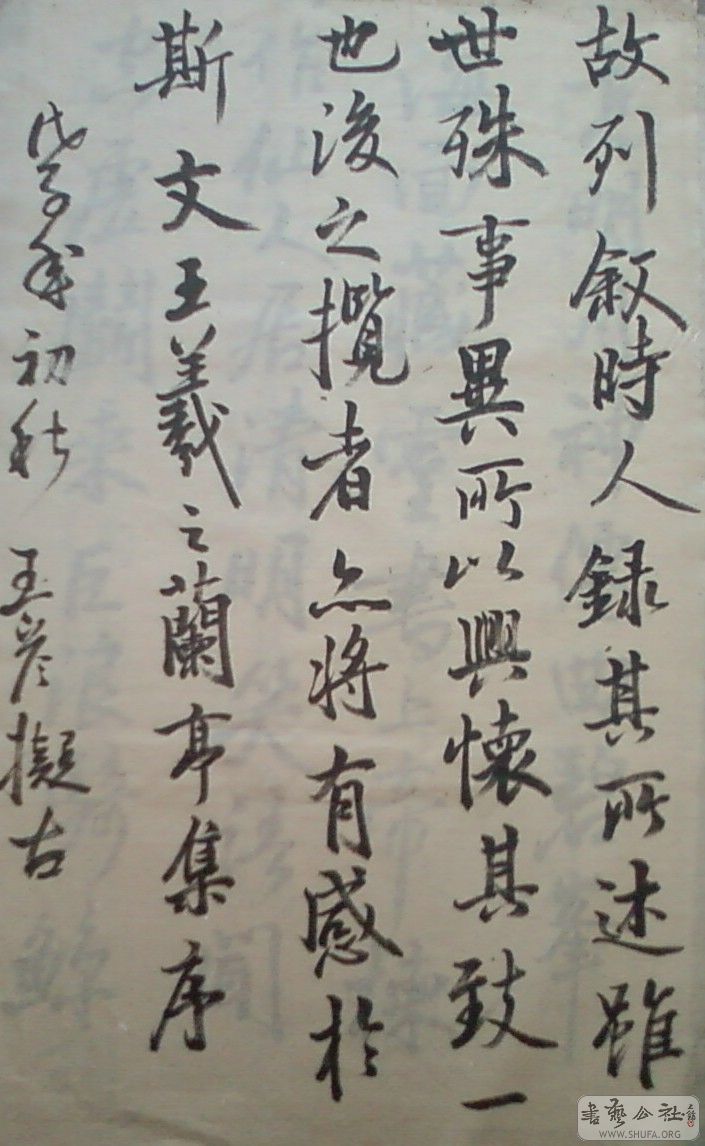 故列敘時人録其所述雖
世殊事異所以興懷其致一
也後之攬者亦將有感於
斯文王羲之蘭亭集序
戊子年初秋 王彦擬古
書藝公社
WWW.SHUFA.ORG